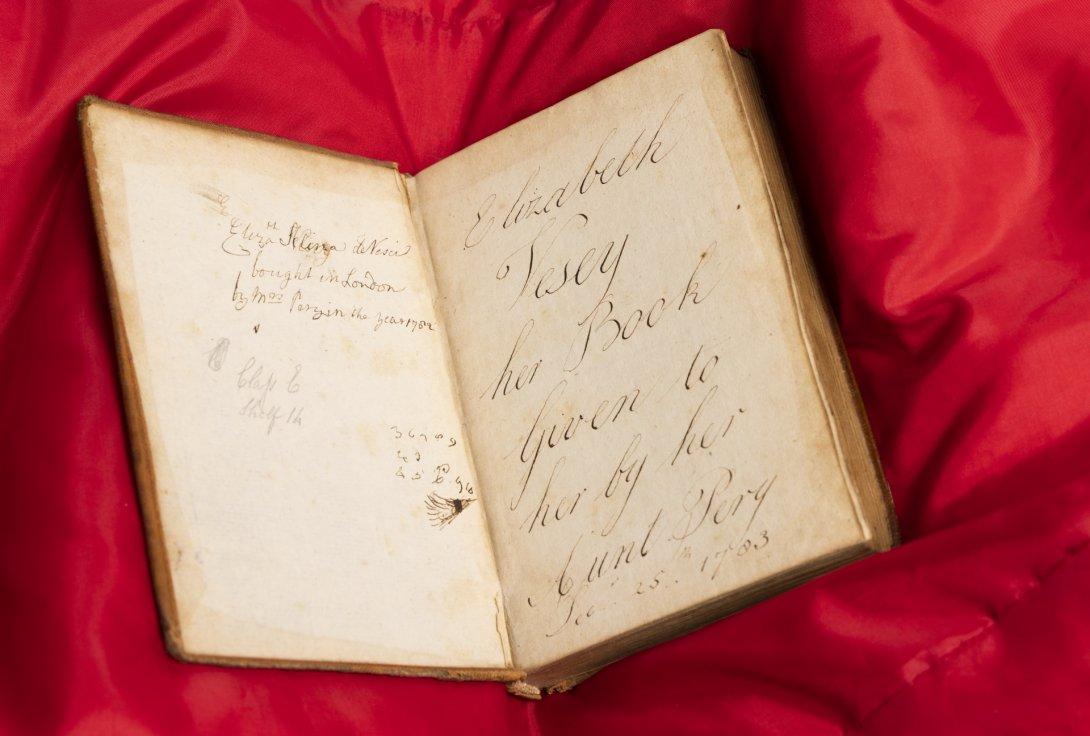 Eliza.th Selina deVesci
bought in London
by Mrs Pery in the year 1782
Class E
Shelf 14
Elizabeth
Vesey
her Book
Given to
her by her
Aunt Pery
25th 1783